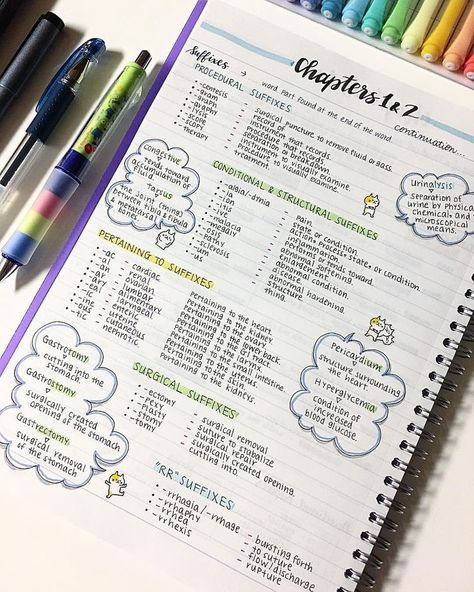 Chapters 1 & 2
continuation...
Suffixes → word part found at the end of the word
PROCEDURAL SUFFIXES
-centesis - surgical puncture to remove fluid or gas.
-gram - record of data.
-graph - instrument that records.
-graphy - procedure that records.
-lysis - separation or breakdown.
-scope - instrument to visually examine.
-scopy - procedure to visually examine.
-therapy - treatment.
Congestive
tends toward
accumulation of
Tarsus
the joint (thing)
between tibia & fibula
& metatarsal & foot
bones
Uringlysis:
separation of
urine by physical,
chemical and
microscopical
means.
CONDITIONAL & STRUCTURAL SUFFIXES
-algia/-dynia - pain.
-ia - state or condition.
-ion - action, process, state, or condition.
-itis - inflammation.
-ive - performs or tends toward.
-malacia - abnormal softening.
-megaly - enlargement.
-osis - abnormal condition.
-pathy - disease.
-sclerosis - abnormal hardening.
-um - structure.
-us - thing.
PERTAINING TO SUFFIXES
-ac - cardiac - pertaining to the heart.
-al - renal - pertaining to the kidney.
-an - ovarian - pertaining to the ovary.
-ar - lumbar - pertaining to the lower back.
-ary - alimentary - pertaining to the GI tract.
-eal - laryngeal - pertaining to the larynx.
-ic - enteric - pertaining to the small intestine.
-ine - uterine - pertaining to the uterus.
-ous - cutaneous - pertaining to the skin.
-tic - nephrotic - pertaining to the kidneys.
Pericardium
structure surrounding
the heart.
Hyperglycemia
condition of
increased
blood glucose.
Gastrotomy
cutting into the
stomach.
Gastrostomy
surgically created
opening of the stomach.
Gastrectomy
surgical removal
of the stomach.
SURGICAL SUFFIXES
-ectomy - surgical removal
-pexy - suture to stabalize
-plasty - surgical repair
-stomy - surgically created opening.
-tomy - cutting into.
"RR" SUFFIXES
-rrhagia/-rrhage - bursting forth
-rrhaphy - to suture
-rrhea - flow/discharge
-rrhexis - rupture